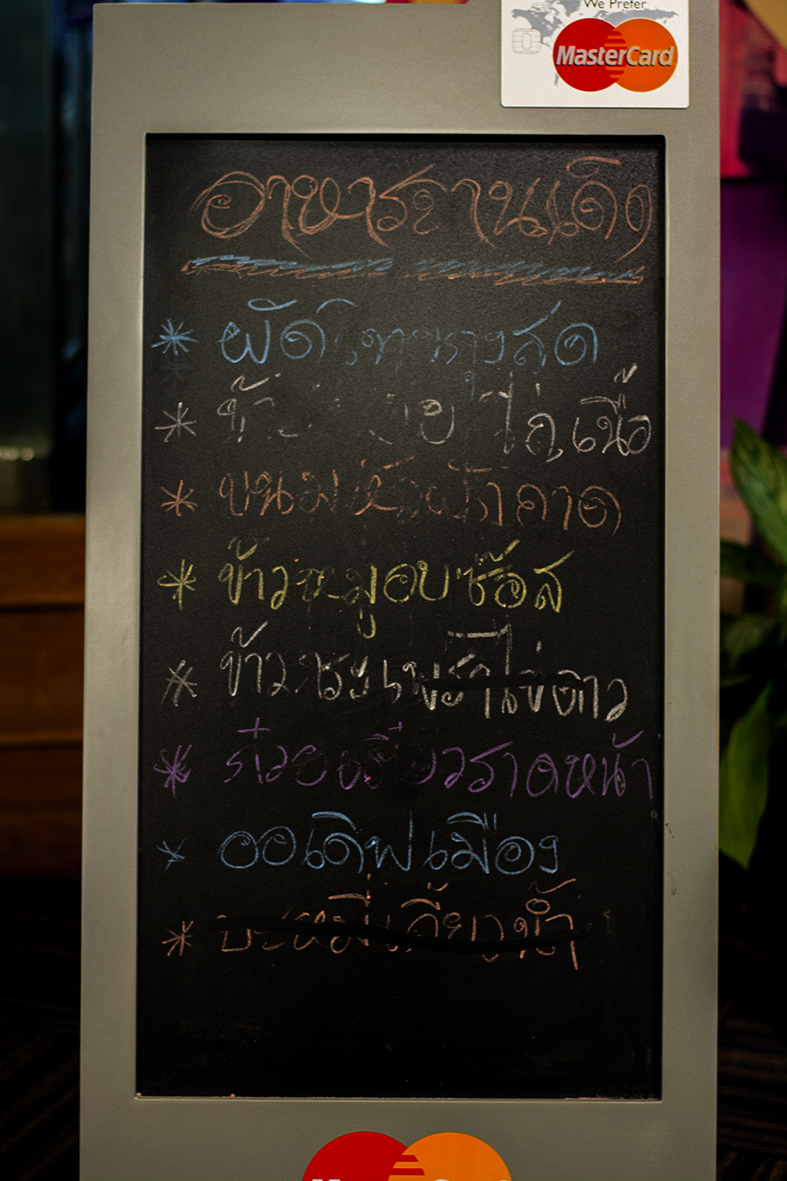 We Prefer
MasterCard
อาหารจานเด็ด
* ผัดไทยกุ้งสด
* ไก่, เนื้อ
* ขนมหัวผักกาด
* ข้าวหมูอบซ๊อส
* ข้าวกระเพราไข่ดาว
* ก๋วยเตี๋ยวราดหน้า
* ออเดิฟเมือง
* บะหมี่เกี๊ยวน้ำ